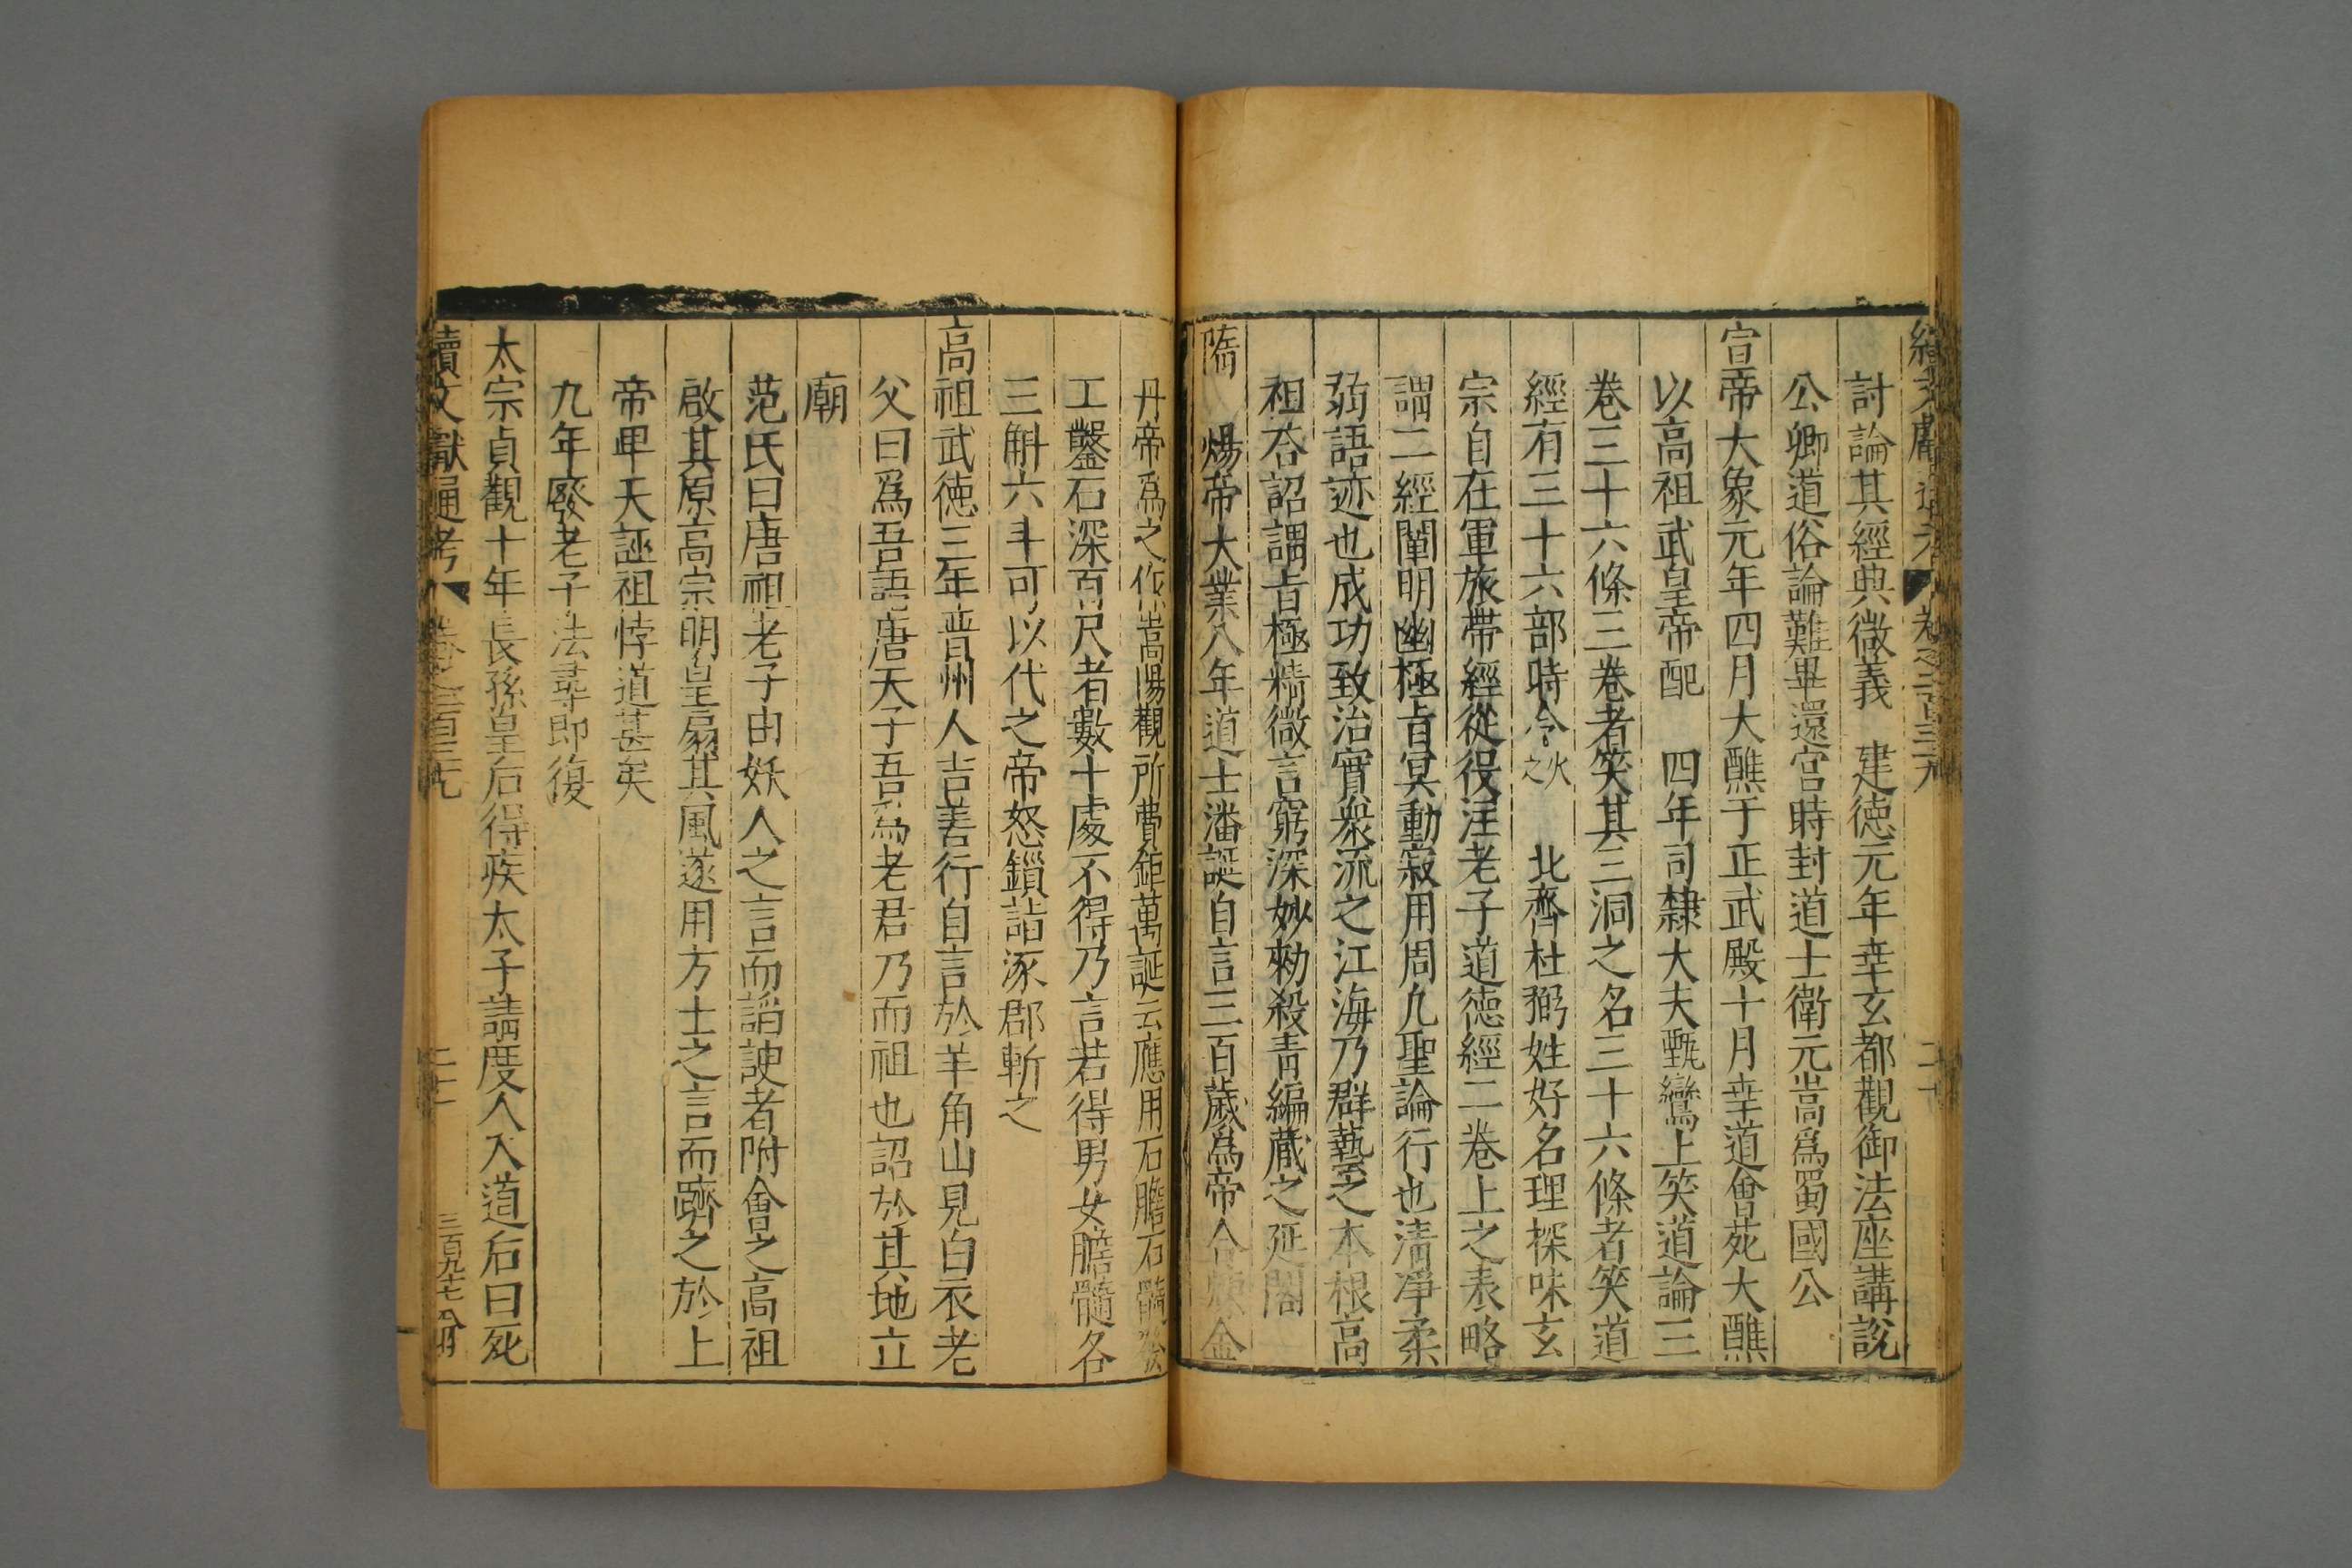 續文獻通考 卷之二百三九 二十
討論其經典微義 建徳元年幸玄都觀御法座講說
公卿道俗論難畢還宮時封道士衛元嵩爲蜀國公
宣帝大象元年四月大醮于正武殿十月幸道會苑大醮
以高祖武皇帝配 四年司隸大夫甄鸞上笑道論三
卷三十六條三卷者笑其三洞之名三十六條者笑道
經有三十六部時令火之 北齊杜弼姓好名理探味玄
宗自在軍旅帶經從役注老子道徳經二卷上之表略
謂二經闡明幽極旨冥動寂用周九聖論行也清凈柔
弱語迹也成功致治實衆流之江海乃群藝之本根高
祖荅詔謂旨極精微言窮深妙勑殺青編蔵之延閣
隋 煬帝大業八年道士潘誕自言三百歲爲帝合煉金
丹帝爲之作嵩陽觀所費鉅萬誕云應用石膽石髓發
工鑿石深百尺者數十處不得乃言若得男女膽髓各
三斛六斗可以代之帝怒鎻詣涿郡斬之
高祖武徳三年晋州人吉善行自言於羊角山見白衣老
父曰爲吾語唐天子吾爲老君乃而祖也詔於其地立
廟
范氏曰唐祖老子由妖人之言而謟諛者附會之高祖
啟其原高宗明皇扇其風遂用方士之言而躋之於上
帝卑天誣祖悖道甚矣
九年廢老子法尋即復
太宗貞觀十年長孫皇后得疾太子請度人入道后曰死
續文獻通考 卷之二百三九 二十 三百九十七